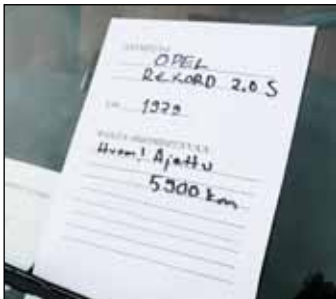 OPEL
REKORD 2.0 S
1979
Huom! Ajettu
5900 km